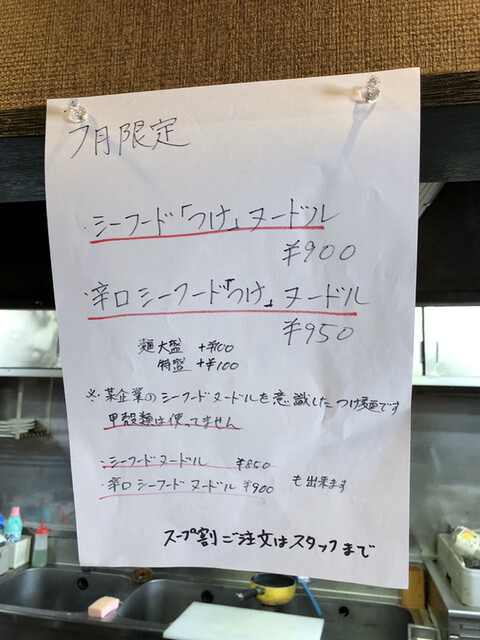 7月限定
・シーフード「つけ」ヌードル
¥900
・辛口シーフード「つけ」ヌードル
¥950
麺大盛 +¥100
特盛 +¥100
※某企業のシーフードヌードルを意識したつけ麺です
甲殻類は使ってません
・シーフードヌードル ¥850
・辛口シーフードヌードル ¥900 も出来ます
スープ割ご注文はスタッフまで